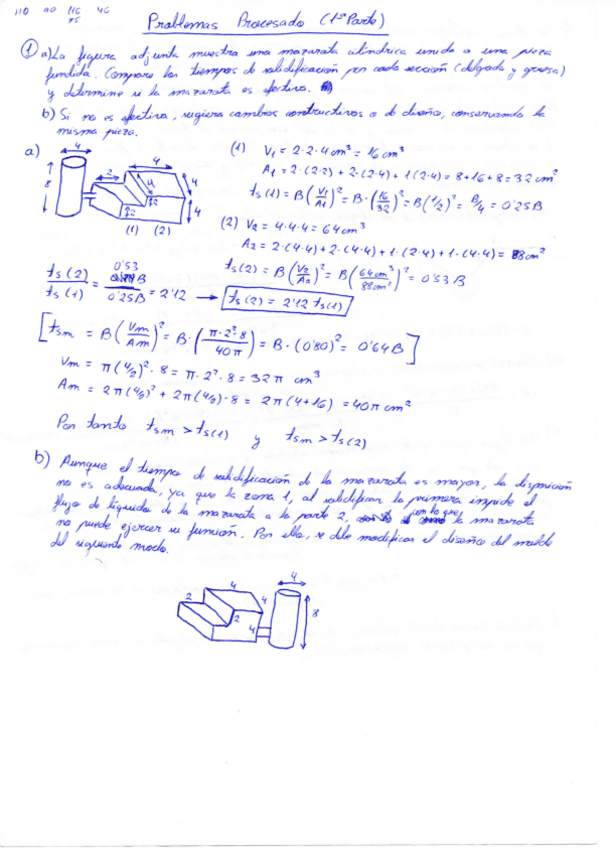 110 90 116 46
75
Problemas Procesado (1ª Parte)
① a) La figura adjunta muestra una mazarota cilíndrica unida a una pieza
fundida. Compare los tiempos de solidificación por cada sección (delgada y gruesa)
y determine si la mazarota es efectiva.
b) Si no es efectiva, sugiera cambios constructivos o de diseño, conservando la
misma pieza.
a)
4
8
2
4
4
4
4
2
2
(1) (2)
(1) V₁ = 2·2·4 cm³ = 16 cm³
A₁ = 2·(2·2) + 2·(2·4) + 1(2·4) = 8+16+8 = 32 cm²
ts(1) = B(V₁/A₁)² = B·(16/32)² = B(1/2)² = B/4 = 0'25B
(2) V₂ = 4·4·4 = 64 cm³
A₂ = 2·(4·4) + 2·(4·4) + 1·(2·4) + 1·(4·4) = 88 cm²
ts(2) = B(V₂/A₂)² = B(64 cm³/88 cm²)² = 0'53 B
ts(2)/ts(1) = 0'53 B/0'25B = 2'12 → ts(2) = 2'12 ts(1)
[tsm = B(Vm/Am)² = B·(π·2²·8/40π)² = B·(0'80)² = 0'64B]
Vm = π(4/2)²·8 = π·2²·8 = 32π cm³
Am = 2π(4/2)² + 2π(4/2)·8 = 2π(4+16) = 40π cm²
Por tanto tsm > ts(1) y tsm > ts(2)
b) Aunque el tiempo de solidificación de la mazarota es mayor, la disposición
no es adecuada, ya que la zona 1, al solidificar la primera impide el
flujo de líquido de la mazarota a la parte 2, con lo que la mazarota
no puede ejercer su función. Por ello, se debe modificar el diseño del molde
del siguiente modo.
4
2
4
2
4
4
8